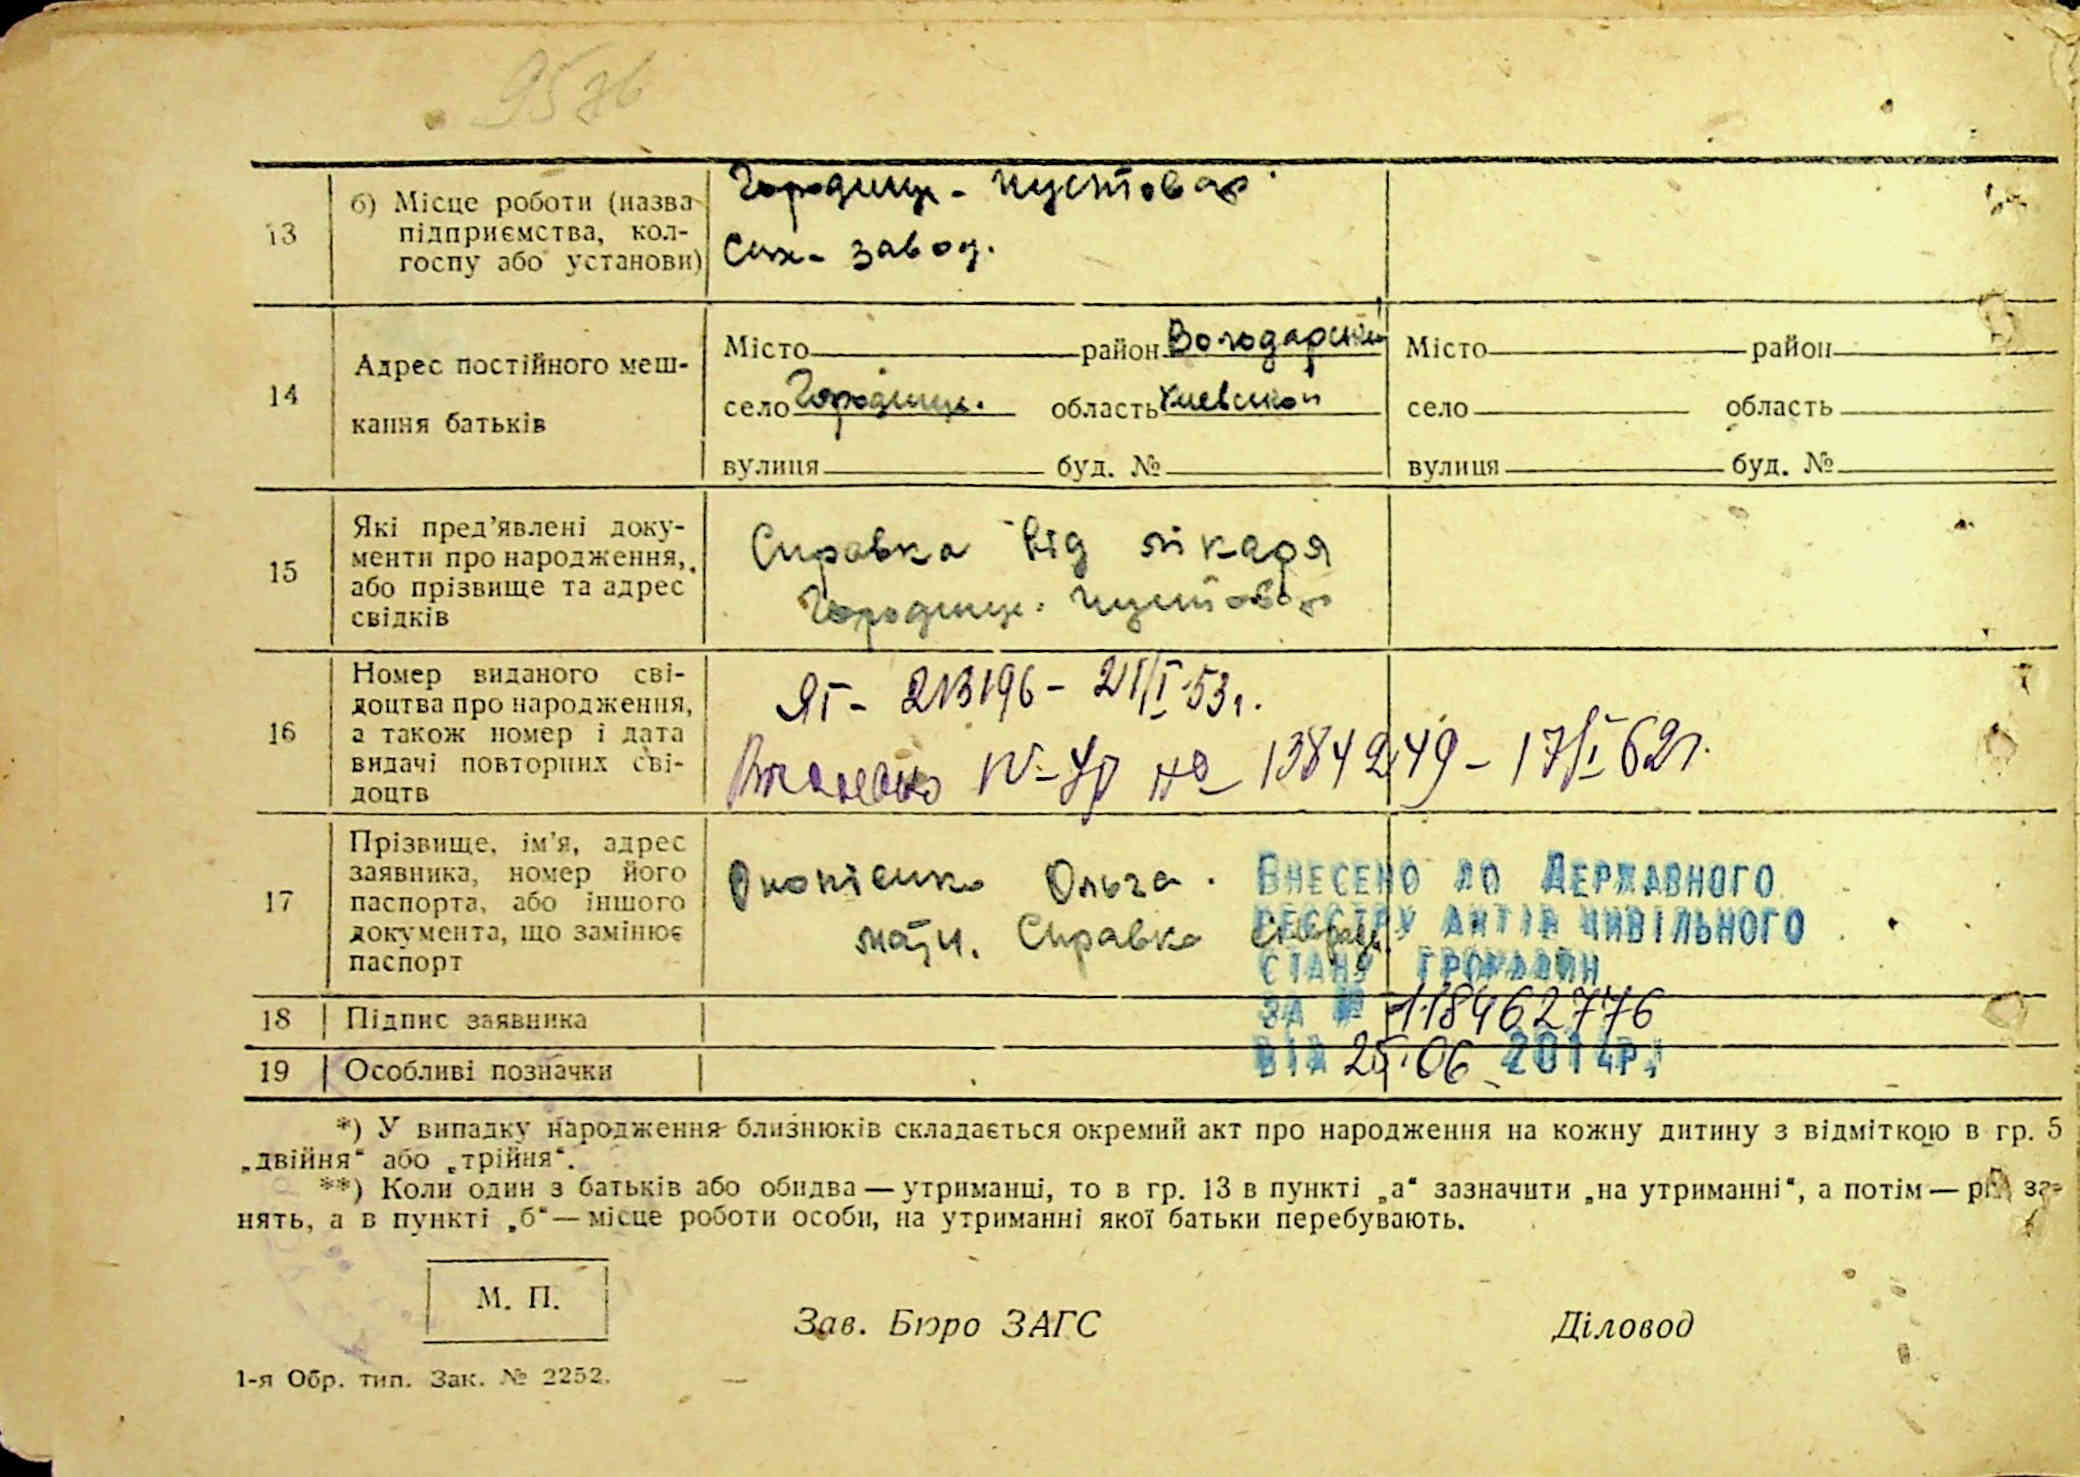 13
б) Місце роботи (назва
підприємства, кол-
госпу або установи)
Городище - Пустовар.
Сах - завод.
14
Адрес постійного меш-
кання батьків
Місто район Володарский
село Городище. область Киевской
вулиця буд. №
Місто район
село область
вулиця буд. №
15
Які пред’явлені доку-
менти про народження,
або прізвище та адрес
свідків
Справка від лікаря
Городище. Пустовар
16
Номер виданого сві-
доцтва про народження,
а також номер і дата
видачі повторних сві-
доцтв
ЯГ - 213196 - 21/I 53 г.
IV-УР № 1384249 - 17/I 62 г.
17
Прізвище, ім’я, адрес
заявника, номер його
паспорта, або іншого
документа, що замінює
паспорт
Онопієнко Ольга.
мати. Справка
18
Підпис заявника
19
Особливі позначки
Внесено до Державного
реєстру актів цивільного
стану громадян
за № 118462776
від 25.06 2014р.
*) У випадку народження близнюків складається окремий акт про народження на кожну дитину з відміткою в гр. 5
„двійня“ або „трійня“.
**) Коли один з батьків або обидва — утриманці, то в гр. 13 в пункті „а“ зазначити „на утриманні“, а потім — рід за-
нять, а в пункті „б“ — місце роботи особи, на утриманні якої батьки перебувають.
М. П.
Зав. Бюро ЗАГС
Діловод
1-я Обр. тип. Зак. № 2252.